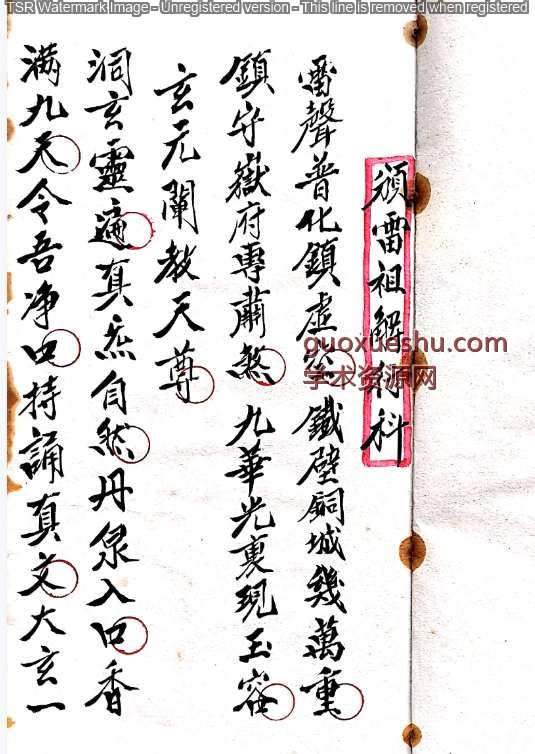 TSR Watermark Image - Unregistered version - This line is removed when registered
雷祖解科
雷聲普化鎮虛 鐵壁銅城幾萬重
鎮守嶽府專肅煞 九華光裏現玉容
玄元闡教天尊
洞玄靈遍真炁自然丹泉入口香
滿九天令吾净口持誦真文大玄一
guoxueshu.com
学术资源网